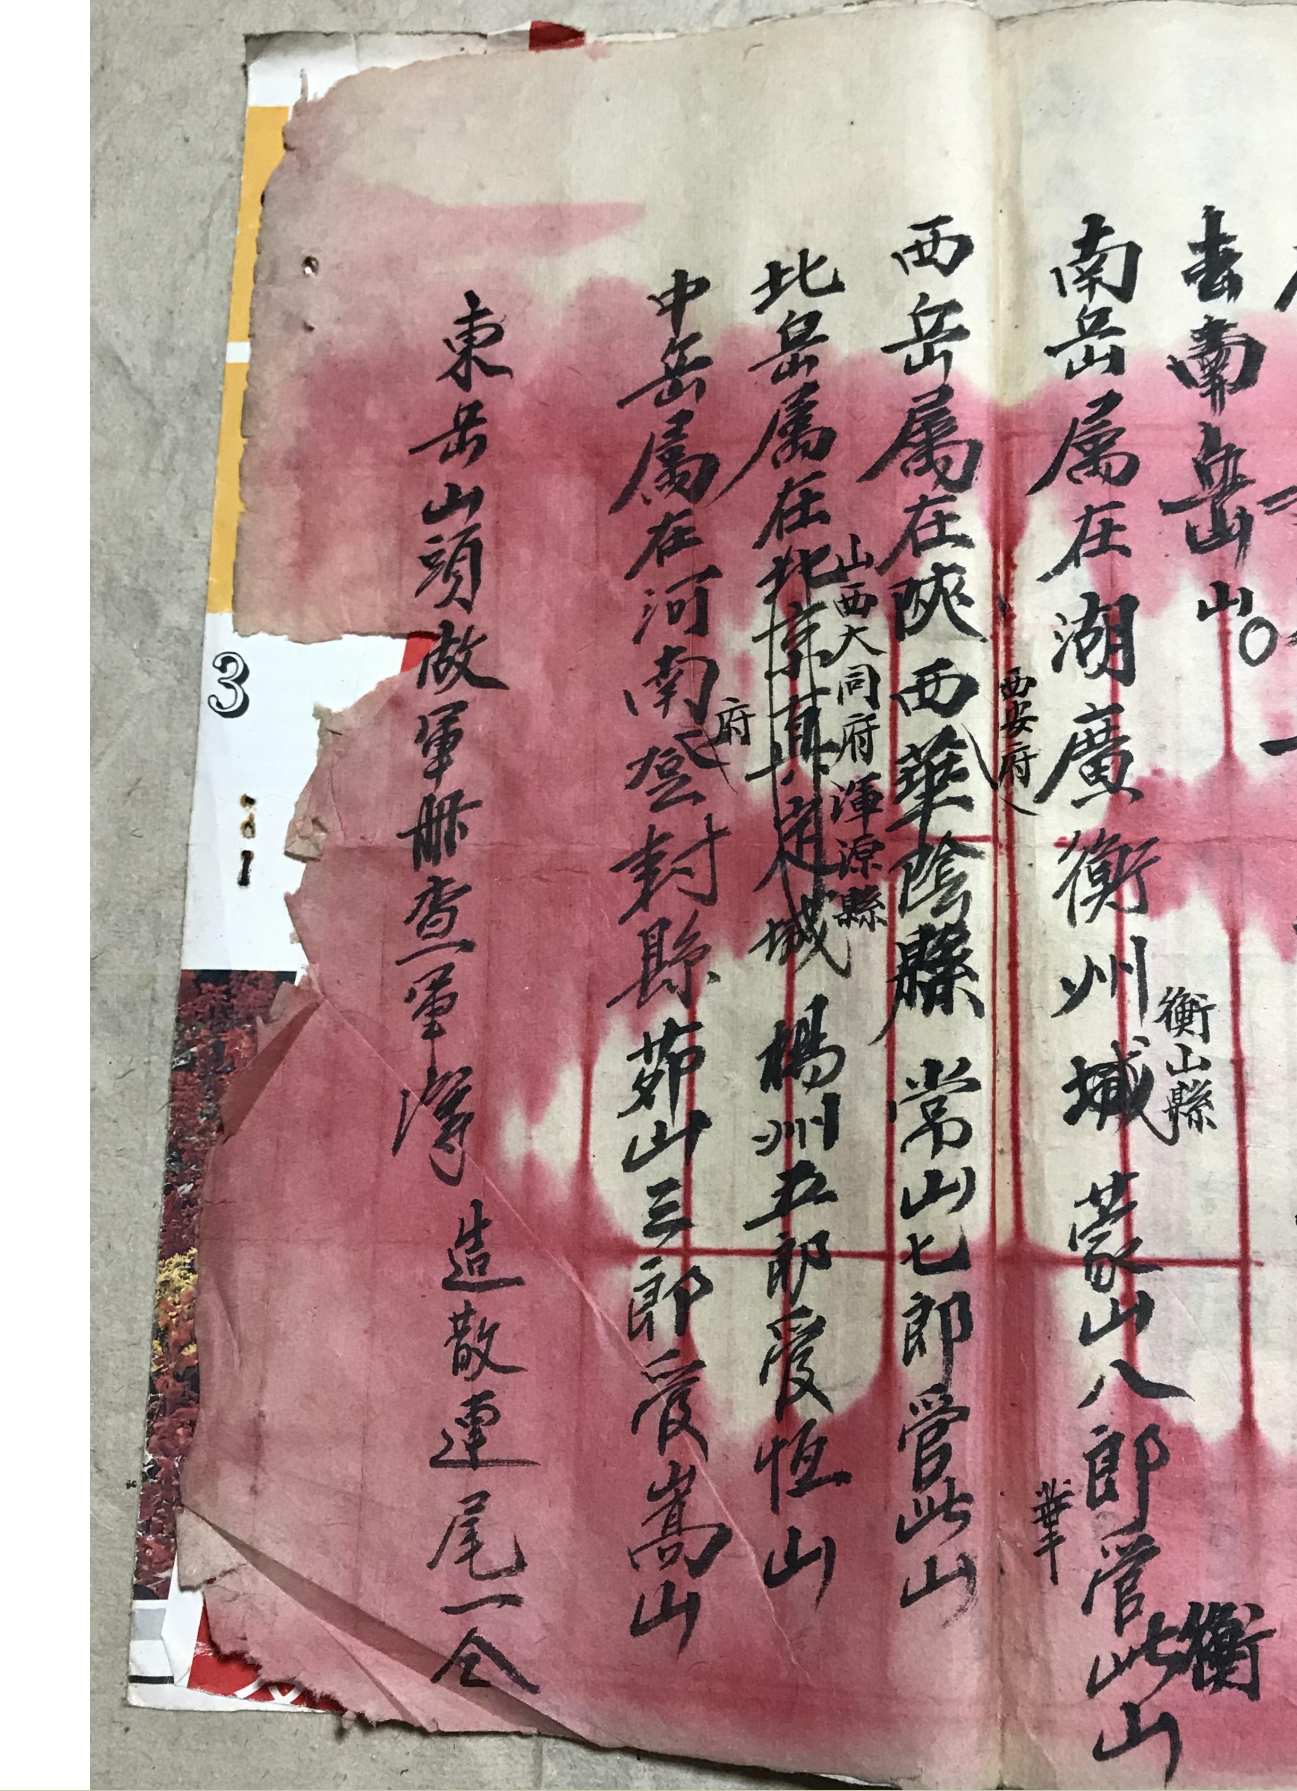 去南岳山
南岳属在湖廣衡州城 蒙山八郎管此山
衡山縣
衡
西岳属在陝西華陰縣 常山七郎管此山
西安府
華
北岳属在北京真定城 楊州五郎管恒山
山西大同府渾源縣
中岳属在河南登封縣 茆山三郎管嵩山
府
東岳山頭做軍 造散連尾一仝
3